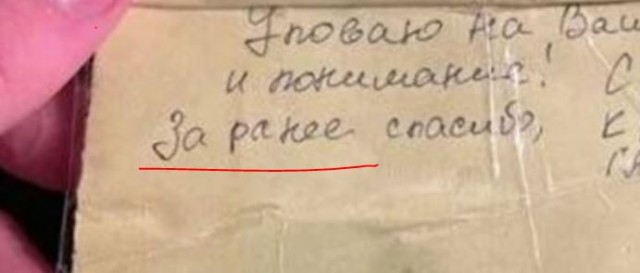 Уповаю на Ваш
и понимание! С
За ранее спасибо, К